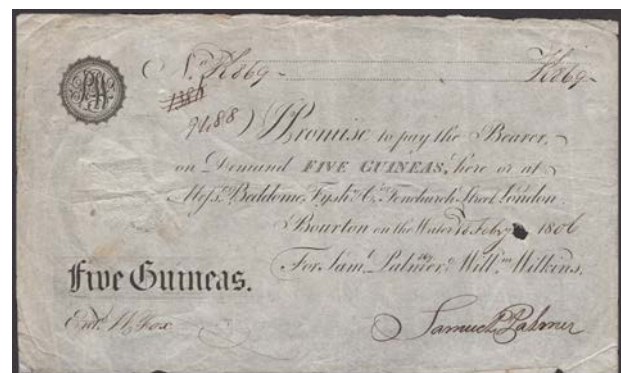 No. K869 K869
1388
9488) I Promise to pay the Bearer,
on Demand FIVE GUINEAS, here or at
Messrs. Beddome, Fysh & Co. Fenchurch Street London
Bourton on the Water Feby. 1806
For Saml. Palmer & Willm. Wilkins,
Five Guineas.
Entd. Fox
Samuel Palmer